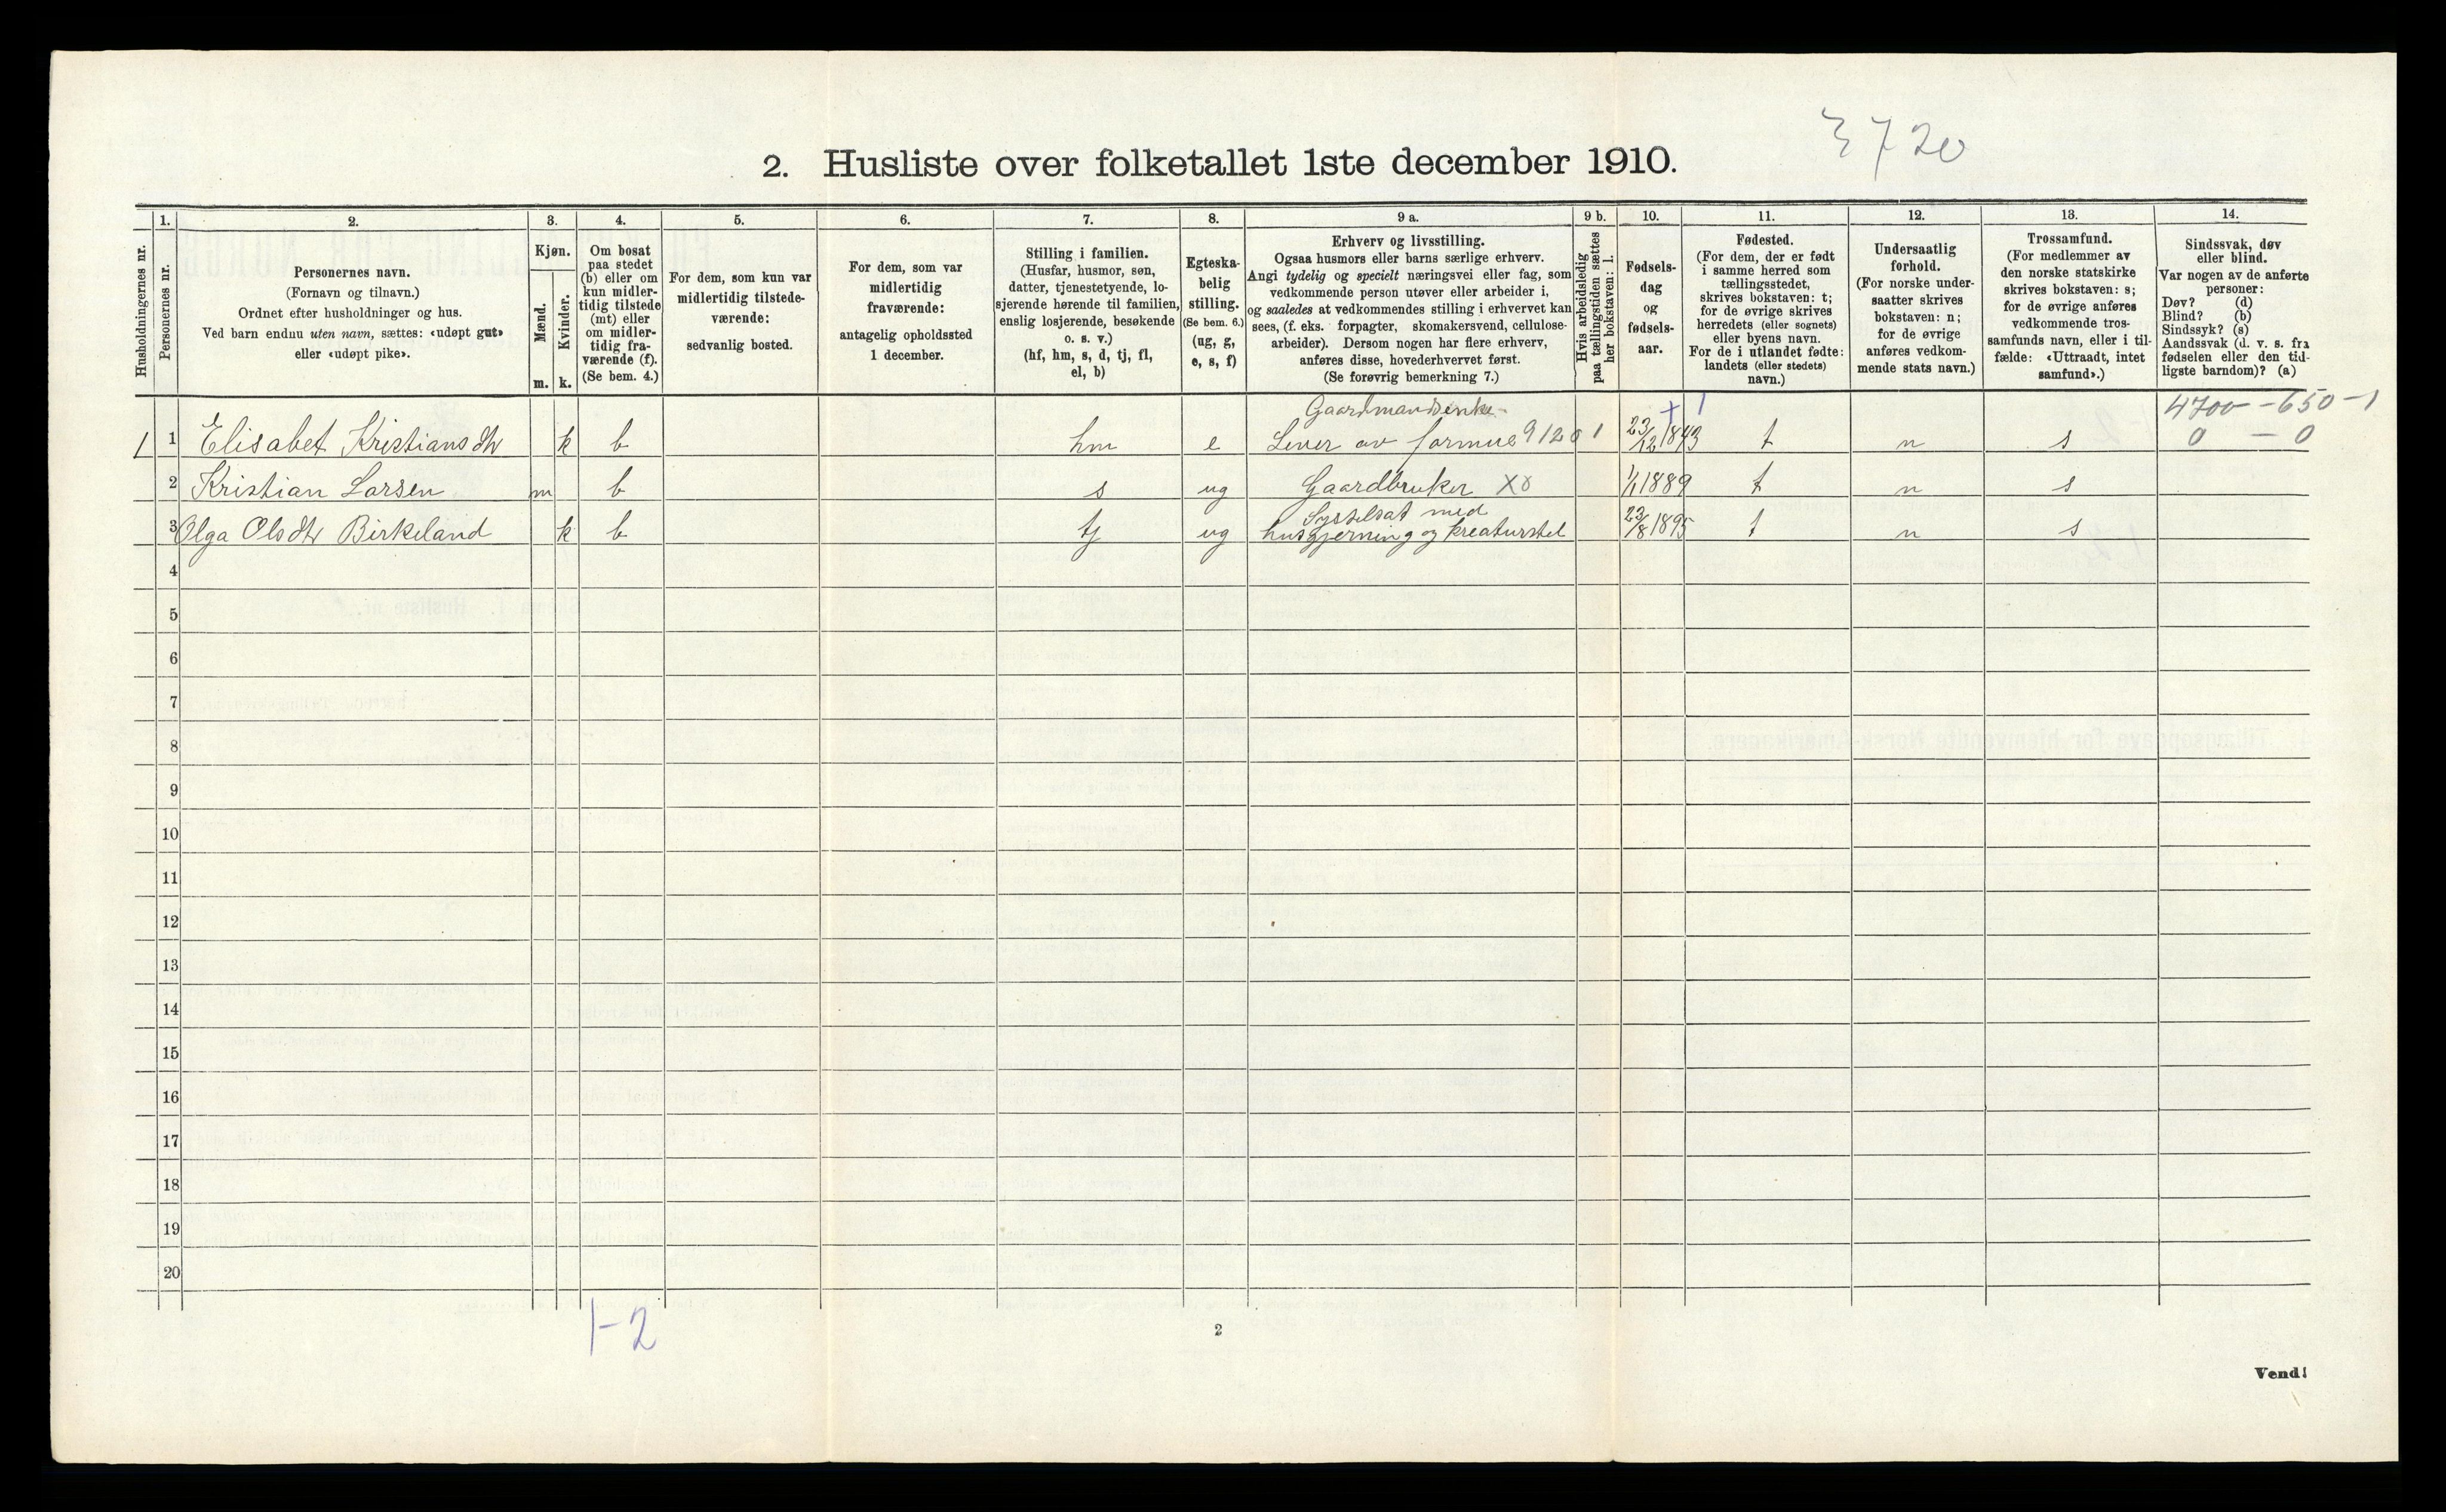 3720
2. Husliste over folketallet 1ste december 1910.
Husholdningernes nr.
1.
Personernes nr.
2.
Personernes navn.
(Fornavn og tilnavn.)
Ordnet efter husholdninger og hus.
Ved barn endnu uten navn, sættes: «udøpt gut»
eller «udøpt pike».
3.
Kjøn.
Mænd.
Kvinder.
m. k.
4.
Om bosat
paa stedet
(b) eller om
kun midler-
tidig tilstede
(mt) eller
om midler-
tidig fra-
værende (f).
(Se bem. 4.)
5.
For dem, som kun var
midlertidig tilstede-
værende:
sedvanlig bosted.
6.
For dem, som var
midlertidig
fraværende:
antagelig opholdssted
1 december.
7.
Stilling i familien.
(Husfar, husmor, søn,
datter, tjenestetyende, lo-
sjerende hørende til familien,
enslig losjerende, besøkende
o. s. v.)
(hf, hm, s, d, tj, fl,
el, b)
8.
Egteska-
belig
stilling.
(Se bem. 6.)
(ug, g,
e, s, f)
9 a.
Erhverv og livsstilling.
Ogsaa husmors eller barns særlige erhverv.
Angi tydelig og specielt næringsvei eller fag, som
vedkommende person utøver eller arbeider i,
og saaledes at vedkommendes stilling i erhvervet kan
sees, (f. eks. forpagter, skomakersvend, cellulose-
arbeider). Dersom nogen har flere erhverv,
anføres disse, hovederhvervet først.
(Se forøvrig bemerkning 7.)
9 b.
Hvis arbeidsledig
paa tællingstiden sættes
her bokstaven: l.
10.
Fødsels-
dag
og
fødsels-
aar.
11.
Fødested.
(For dem, der er født
i samme herred som
tællingsstedet,
skrives bokstaven: t;
for de øvrige skrives
herredets (eller sognets)
eller byens navn.
For de i utlandet fødte:
landets (eller stedets)
navn.)
12.
Undersaatlig
forhold.
(For norske under-
saatter skrives
bokstaven: n;
for de øvrige
anføres vedkom-
mende stats navn.)
13.
Trossamfund.
(For medlemmer av
den norske statskirke
skrives bokstaven: s;
for de øvrige anføres
vedkommende tros-
samfunds navn, eller i til-
fælde: «Uttraadt, intet
samfund».)
14.
Sindssvak, døv
eller blind.
Var nogen av de anførte
personer:
Døv? (d)
Blind? (b)
Sindssyk? (s)
Aandssvak (d. v. s. fra
fødselen eller den tid-
ligste barndom)? (a)
Gaardmandsenke + 1 4700 - 650 - 1
1 1 Elisabet Kristiansdtr k b hm e Lever av formue 9120 1 23/12 1843 t n s 0 - 0
2 Kristian Larsen m b s ug Gaardbruker X8 1/1 1889 t n s
Sysselsat med
3 Olga Olsdtr Birkeland k b tj ug husgjerning og kreaturstel 23/8 1895 t n s
4
5
6
7
8
9
10
11
12
13
14
15
16
17
18
19
20
1-2
2
Vend!